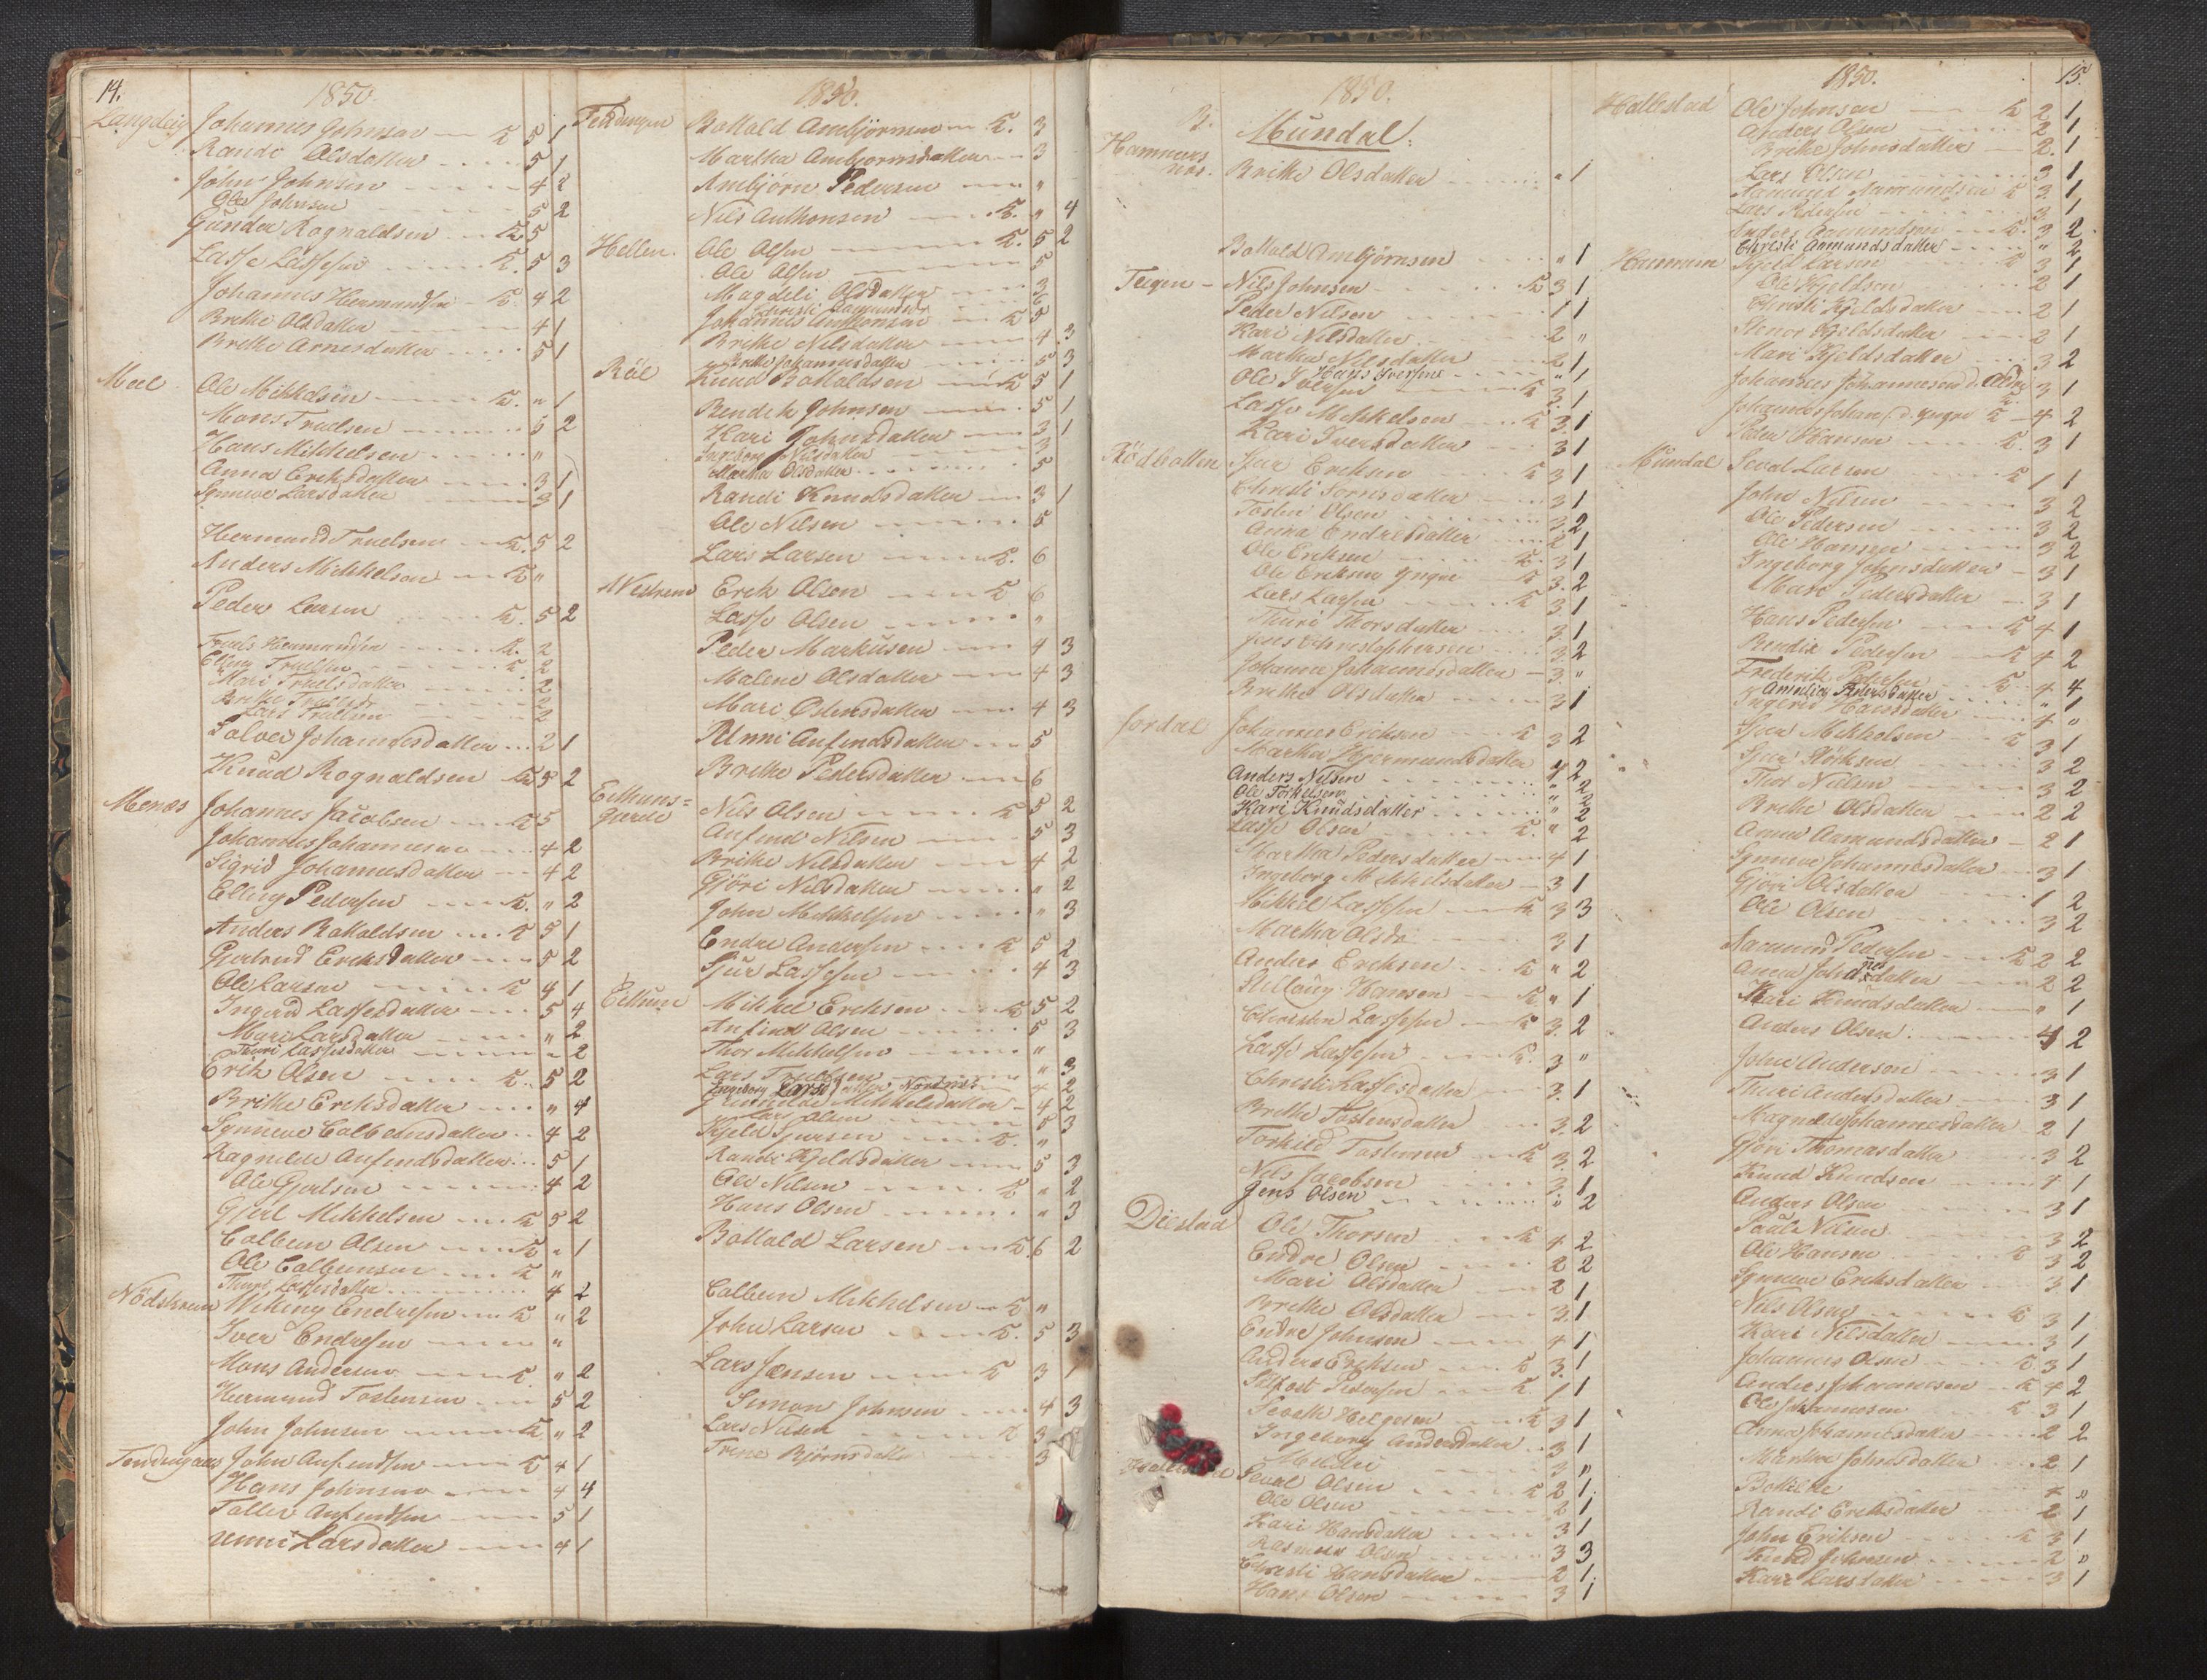 14.
1850.
Langeleig Johannes Johnsen K 5 1
Randi Olsdatter 5 1
John Johnsen 4 2
Ole Johnsen 5 2
Gunder Rognaldsen K 5
Lasse Lassesen K. 5 3
Johannes Hermundsen K 4 2
Brithe Olsdatter 4 1
Brithe Arnesdatter 5 1
Meel Ole Mikkelsen K. " 1
Mons Truelsen 5 2
Hans Mikkelsen "
Anna Eriksdatter 3 1
Synneve Larsdatter 3 1
Hermund Truelsen K. 5 2
Anders Mikkelsen K "
Peder Larsen K. 5 2
Truels Hermundsen K. 2
Elling Truelsen K 2
Mari Truelsdatter 2
Brithe Truelsdr 2
Lars Truelsen 2
Solvei Johannesdatter 2 1
Knud Rognaldsen K 5 2
Menæs Johannes Jacobsen K 5
Johannes Johannesen 4 2
Sigrid Johannesdatter 4 2
Elling Pedersen K. " 2
Anders Botholdsen K 5 1
Gjertrud Eriksdatter 5 2
Ole Larsen K 4 1
Ingerid Lassesdatter 5 4
Mari Larsdatter " 2
Thuri Lassesdatter " 2
Erik Olsen K. 5 2
Brithe Eriksdatter " 4
Synneve Colbeinsdatter 4 2
Ragnilde Anfindsdatter 5 1
Ole Gjerlsen 4 2
Gjerl Mikkelsen K 5 2
Colbein Olsen K " 1
Ole Colbeinsen K "
Thuri Lassesdatter 4 2
Nödstrem Wiking Endresen K " 2
Iver Endresen "
Mons Andersen K. " 2
Hermund Tostensen 5 2
John Johnsen K " 2
Tendingaas John Anfindsen K 4 1
Hans Johnsen 4 4
Tollev Anfindsen 5 1
Unni Larsdatter 4 1
1850.
Tendingen Bottold Ambjörnsen K. 3
Martha Ambjornsdatter 3
Ambjörn Pedersen "
Nils Anthonsen K. " 4
Hellen. Ole Olsen K. 5 2
Ole Olsen 5
Magdeli Olsdatter 3
Christi Aamundsdr 6
Johannes Anthonsen K 5
Brithe Nilsdatter 4 3
Brithe Johannesdatter 5 3
Röe Knud Bottoldsen K 5 1
Bendik Johnsen 5 1
Kari Johnsdatter 3 1
Ingeborg Nilsdatter 3
Martha Olsdatter 5
Randi Knudsdatter 3 1
Ole Nilsen 5
Lars Larsen K. 6
Westrem Erik Olsen K 6
Lasse Olsen "
Peder Markusen 4 3
Malene Olsdatter 4 3
Mari Ostensdatter 4 3
Unni Anfindsdatter 5
Brithe Pedersdatter 6
Eithuns=
gjerde Nils Olsen K 5 2
Anfind Nilsen 5 3
Brithe Nilsdatter 4 2
Gjöri Nilsdatter " 2
John Mikkelsen " 3
Endre Andersen K 5 2
Sjur Lassesen 4 3
Eithun Mikkel Eriksen K 5 2
Anfind Olsen 5 3
Thor Mikkelsen "
Lars Truelsen " 3
Ingeborg Larsdatter Nordnes 4 2
Gunnilde Mikkelsdatter 4 2
Lars Olsen 5 3
Kjeld Sjursen K. "
Randi Kjeldsdatter 5 3
Ole Nilsen K " 2
Hans Olsen " 3
Bottold Larsen K. 6 2
Colbein Mikkelsen K "
John Larsen K. 5 3
Lars Jensen K 3 1
Simon Johnsen 4 3
Lars Nilsen K 3
Trine Björnsdatter 3
1850.
B. Mundal:
Hammers
næs. Brithe Olsdatter " 1
Bottold Ambjörnsen " 1
Teigen Nils Johnsen K 3 1
Peder Nilsen 1 1
Kari Nilsdatter 2 "
Martha Nilsdatter 2 1
Hans Iversen " 1
Ole Iversen K 3 1
Lasse Mikkelsen K 3 1
Kari Iversdatter 3 1
Rödbotten Sjur Eriksen K 3 1
Christi Sornsdatter 3 1
Tosten Olsen 3 2
Anna Endresdatter 2 1
Ole Eriksen K. 3 1
Ole Eriksen yngre K 3. 2
Lars Larsen K 3 1
Thuri Thorsdatter 3 1
Jens Christophersen 3. 2
Johanna Johannesdatter 3 "
Brithe Olsdatter 3 1
Jordal Johannes Eriksen K 3 2
Martha Hjermundsdatter 4 2
Anders Nilsen " 2
Ole Torkelsen " 2
Kari Knudsdatter " 2
Lasse Olsen K. " 2
Martha Pedersdatter 4 1
Ingeborg Mikkelsdatter 3 1
Mikkel Lassesen K 3 3
Martha Olsdr 3 1
Anders Eriksen K " 2
Stellaug Hansen K " 1
Christen Lassesen K 3. 2
Lasse Lassesen K. 3 "
Christi Lassesdatter 3. 1
Brithe Tostensdatter 3. 2
Torkild Tostensen K 3. 2
Nils Jacobsen 3. 1
Jens Olsen " 2
Distad Ole Thorsen K 4 2
Endre Olsen 2 2
Mari Olsdatter 2 1
Brithe Olsdatter 3. 1
Endre Johnsen 4 1
Anders Eriksen K 3. 1
Silfast Pedersen K. 1 1
Siveth Helgesen K 3 1
Ingeborg Andersdatter 3 1
3 "
Sevat Olsen K 2 1.
Ole Olsen 2 1
Kari Hansdatter 3 1
Rasmus Olsen 3 3
Christi Hansdatter 2 1.
Hans Olsen 3 1
1850. 15.
Hallestad Ole Johnsen K 2 1
Anders Olsen 2 1
Brithe Johnsdatter 2. 1
Lars Olsen 3 1
Aamund Aamundsen K 3 1
Lars Pedersen 3 1
Anders Aamundsen K. 3 2
Christi Aamundsdatter " 2
Haumum Kjeld Larsen K 3 1
Ole Kjeldsen 2 1
Christi Kjeldsdatter 2 1
Elenor Kjeldsdatter 2 1
Mari Kjeldsdatter 3 2
Johannes Johannesen d. Ældre K. 3 1
Johannes Johansen d. yngre K 4 2
Peder Hansen K. 3 1
Mundal Sevat Larsen K 1 1
John Nilsen 3 2
Ole Pedersen 3 2
Ole Hansen 3 2
Ingeborg Johnsdatter 3 1
Mari Pedersdatter 3 1
Hans Pedersen K 4 1
Bendix Pedersen K 4 2
Frederik Pedersen K 4 4
Amalia Pedersdatter " 1
Ingerid Hansdatter 4 "
Iver Mikkelsen K 3 1
Sjur Störksen 3 2
Thor Nilsen 3 2
Brithe Olsdatter 2 2
Anna Aamundsdatter 2 1
Synneve Johannesdatter 3 1
Gjöri Olsdatter 1 2
Ole Olsen 3 2
Aamund Pedersen K 2 2
Anna Johannesdatter 2 2
Kari Knudsdatter " 1
Anders Olsen 4 2
John Andersen 3 1
Thuri Andersdatter 3 1
Magnilde Johannesdatter 2 1
Gjöri Thomasdatter 3 2
Knud Knudsen 4 1
Anders Olsen 3 1
Paul Nilsen 3 2
Ole Hansen K 3 2
Synneve Eriksdatter 3 1
Nils Olsen K 3 1
Kari Nilsdatter 3 1
Johannes Olsen K. 3 1
Anders Johannesen K 4 2
Ole Johannesen K 3 1
Anna Johannesdatter 2 2
Martha Johnsdatter 2 1
Botilde "
Randi Eriksdatter 2 1
John Eriksen K 3 1
Knud Johnsen 2 "
Kari Larsdatter 3 1